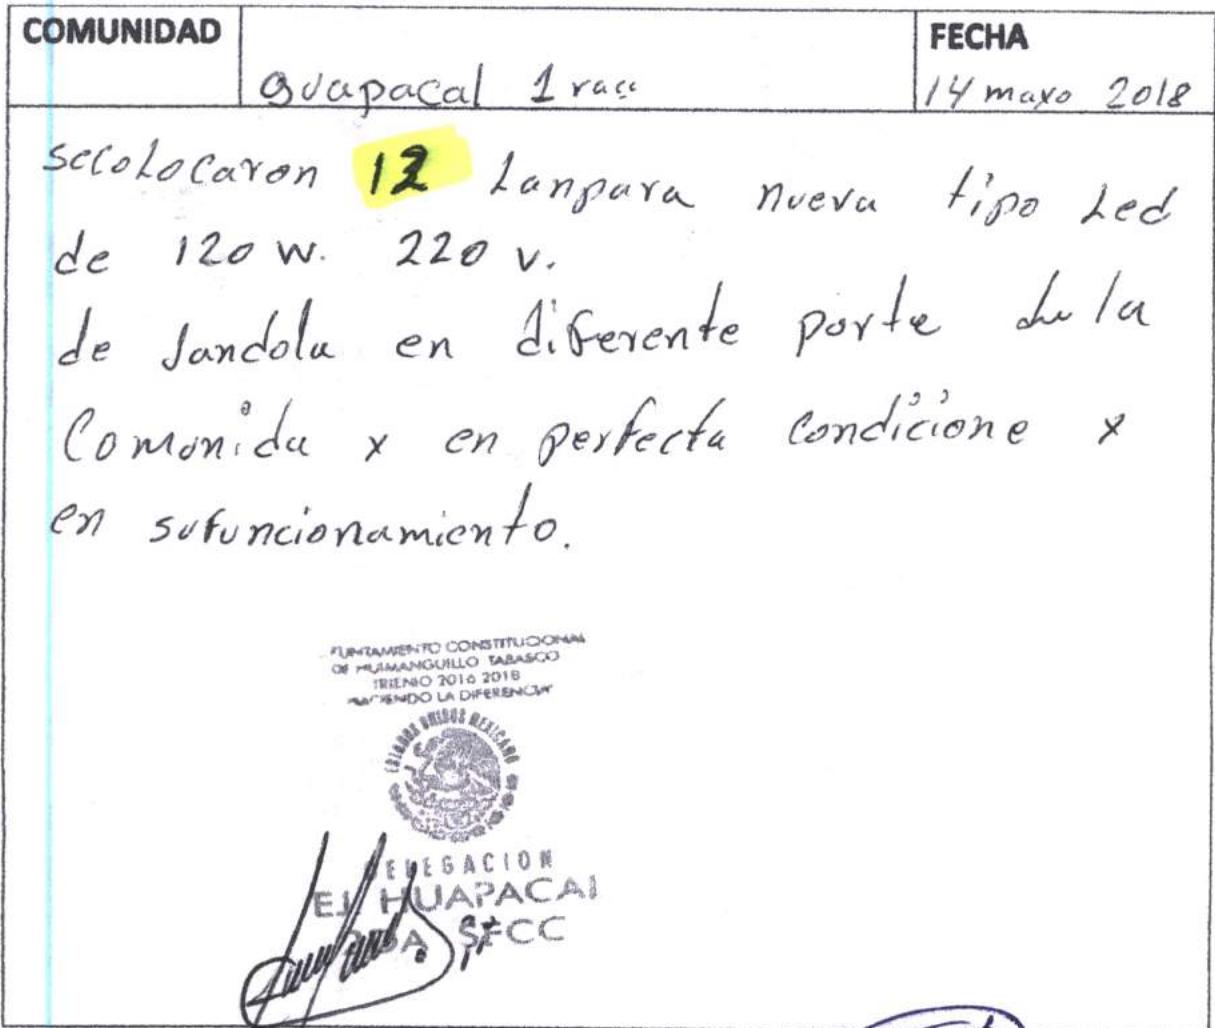 COMUNIDAD
FECHA
guapacal 1 raa
14 mayo 2018
secolocaron 12 Lanpara nueva tipo Led
de 120 w. 220 v.
de Jandola en diferente parte de la
Comonida y en perfecta condicione y
en sufuncionamiento.
UNTAMIENTO CONSTITUCIONAL
DE HUIMANGUILLO TABASCO
TRIENIO 2016 2018
HACIENDO LA DIFERENCIA
ESTADOS UNIDOS MEXICANO
DELEGACION
EL HUAPACAL
SECC